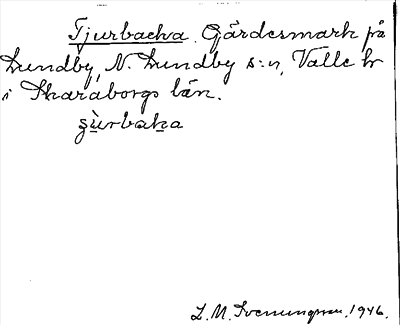 Tjurbacka. Gärdesmark på
Lundby, N. Lundby s:n, Valle hr
i Skaraborgs län.
ʒu̇rbaka
L. M. Svenungsson, 1946.